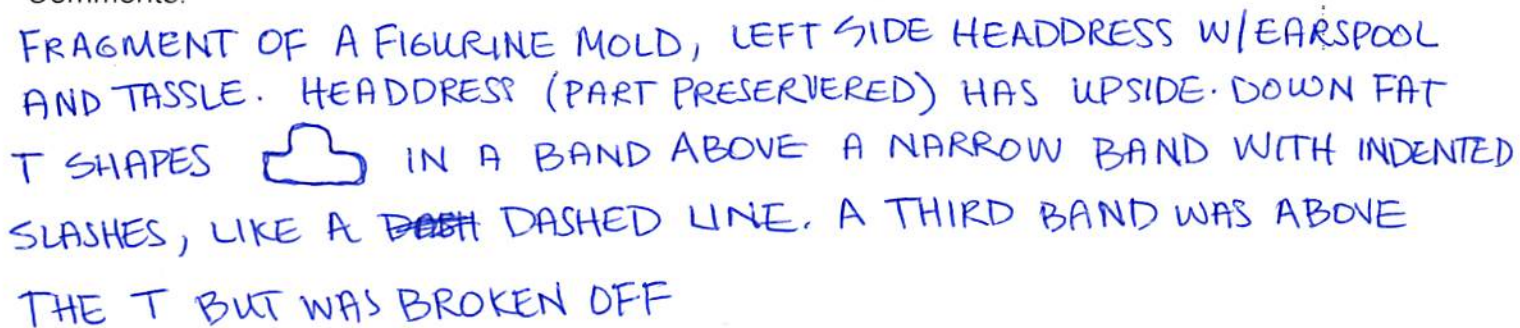 Comments:
FRAGMENT OF A FIGURINE MOLD, LEFT SIDE HEADDRESS W/EARSPOOL
AND TASSLE. HEADDRESS (PART PRESERVERED) HAS UPSIDE-DOWN FAT
T SHAPES IN A BAND ABOVE A NARROW BAND WITH INDENTED
SLASHES, LIKE A DASHED LINE. A THIRD BAND WAS ABOVE
THE T BUT WAS BROKEN OFF